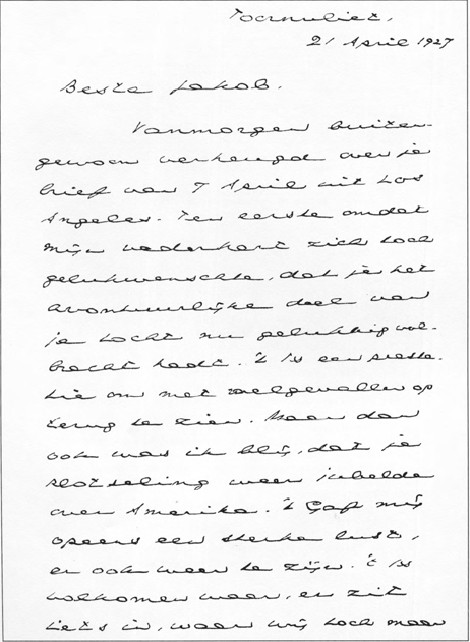 Toornvliet,
21 April 1927
Beste Jakob.
Vanmorgen buiten-
gewoon verheugd over je
brief van 7 April uit Los
Angeles. Ten eerste omdat
mijn vaderhart zich toch
gelukwenschte, dat je het
avontuurlijke deel van
je tocht nu gelukkig vol-
bracht hadt. 't Is een
om met welgevallen op
terug te zien. Maar dan
ook was ik blij, dat je
slotseling weer jubelde
over Amerika. 't Gaf mij
opeens een sterke lust,
er ook weer te zijn. 't Is
volkomen waar, er zit
iets in, waar wij toch maar